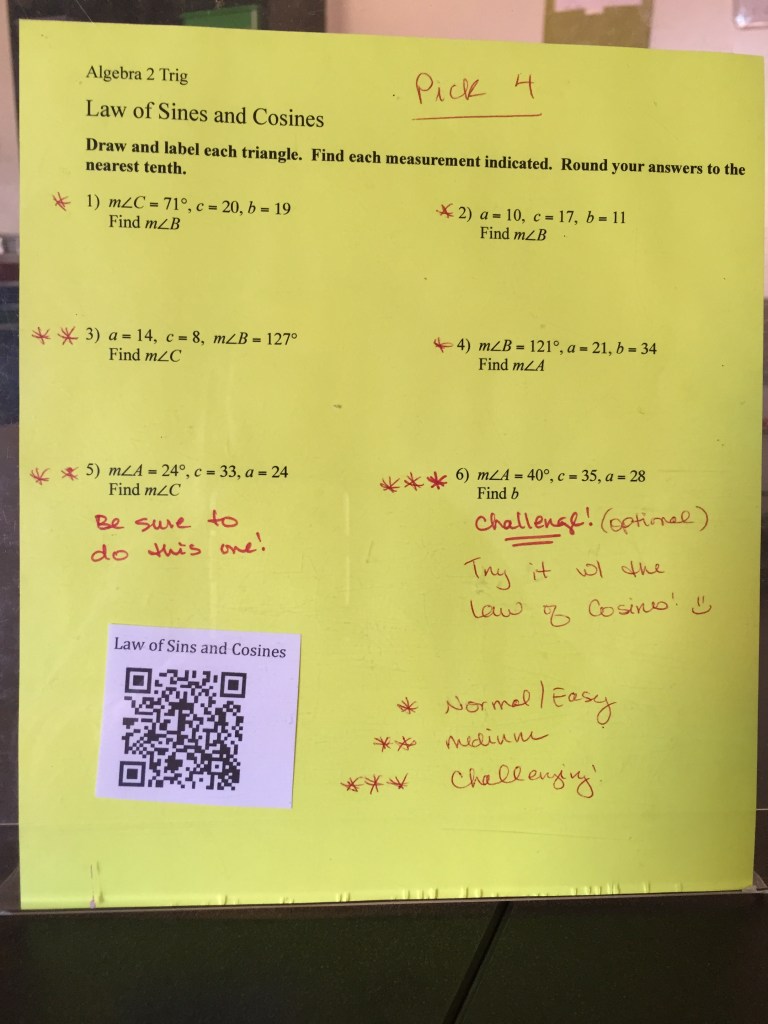 Algebra 2 Trig
Pick 4
Law of Sines and Cosines
Draw and label each triangle. Find each measurement indicated. Round your answers to the
nearest tenth.
* 1) m∠C = 71°, c = 20, b = 19
Find m∠B
* 2) a = 10, c = 17, b = 11
Find m∠B
** 3) a = 14, c = 8, m∠B = 127°
Find m∠C
* 4) m∠B = 121°, a = 21, b = 34
Find m∠A
** 5) m∠A = 24°, c = 33, a = 24
Find m∠C
Be sure to
do this one!
*** 6) m∠A = 40°, c = 35, a = 28
Find b
Challenge! (optional)
Try it w/ the
Law of Cosines! :)
Law of Sins and Cosines
* Normal/Easy
** medium
*** Challenging!